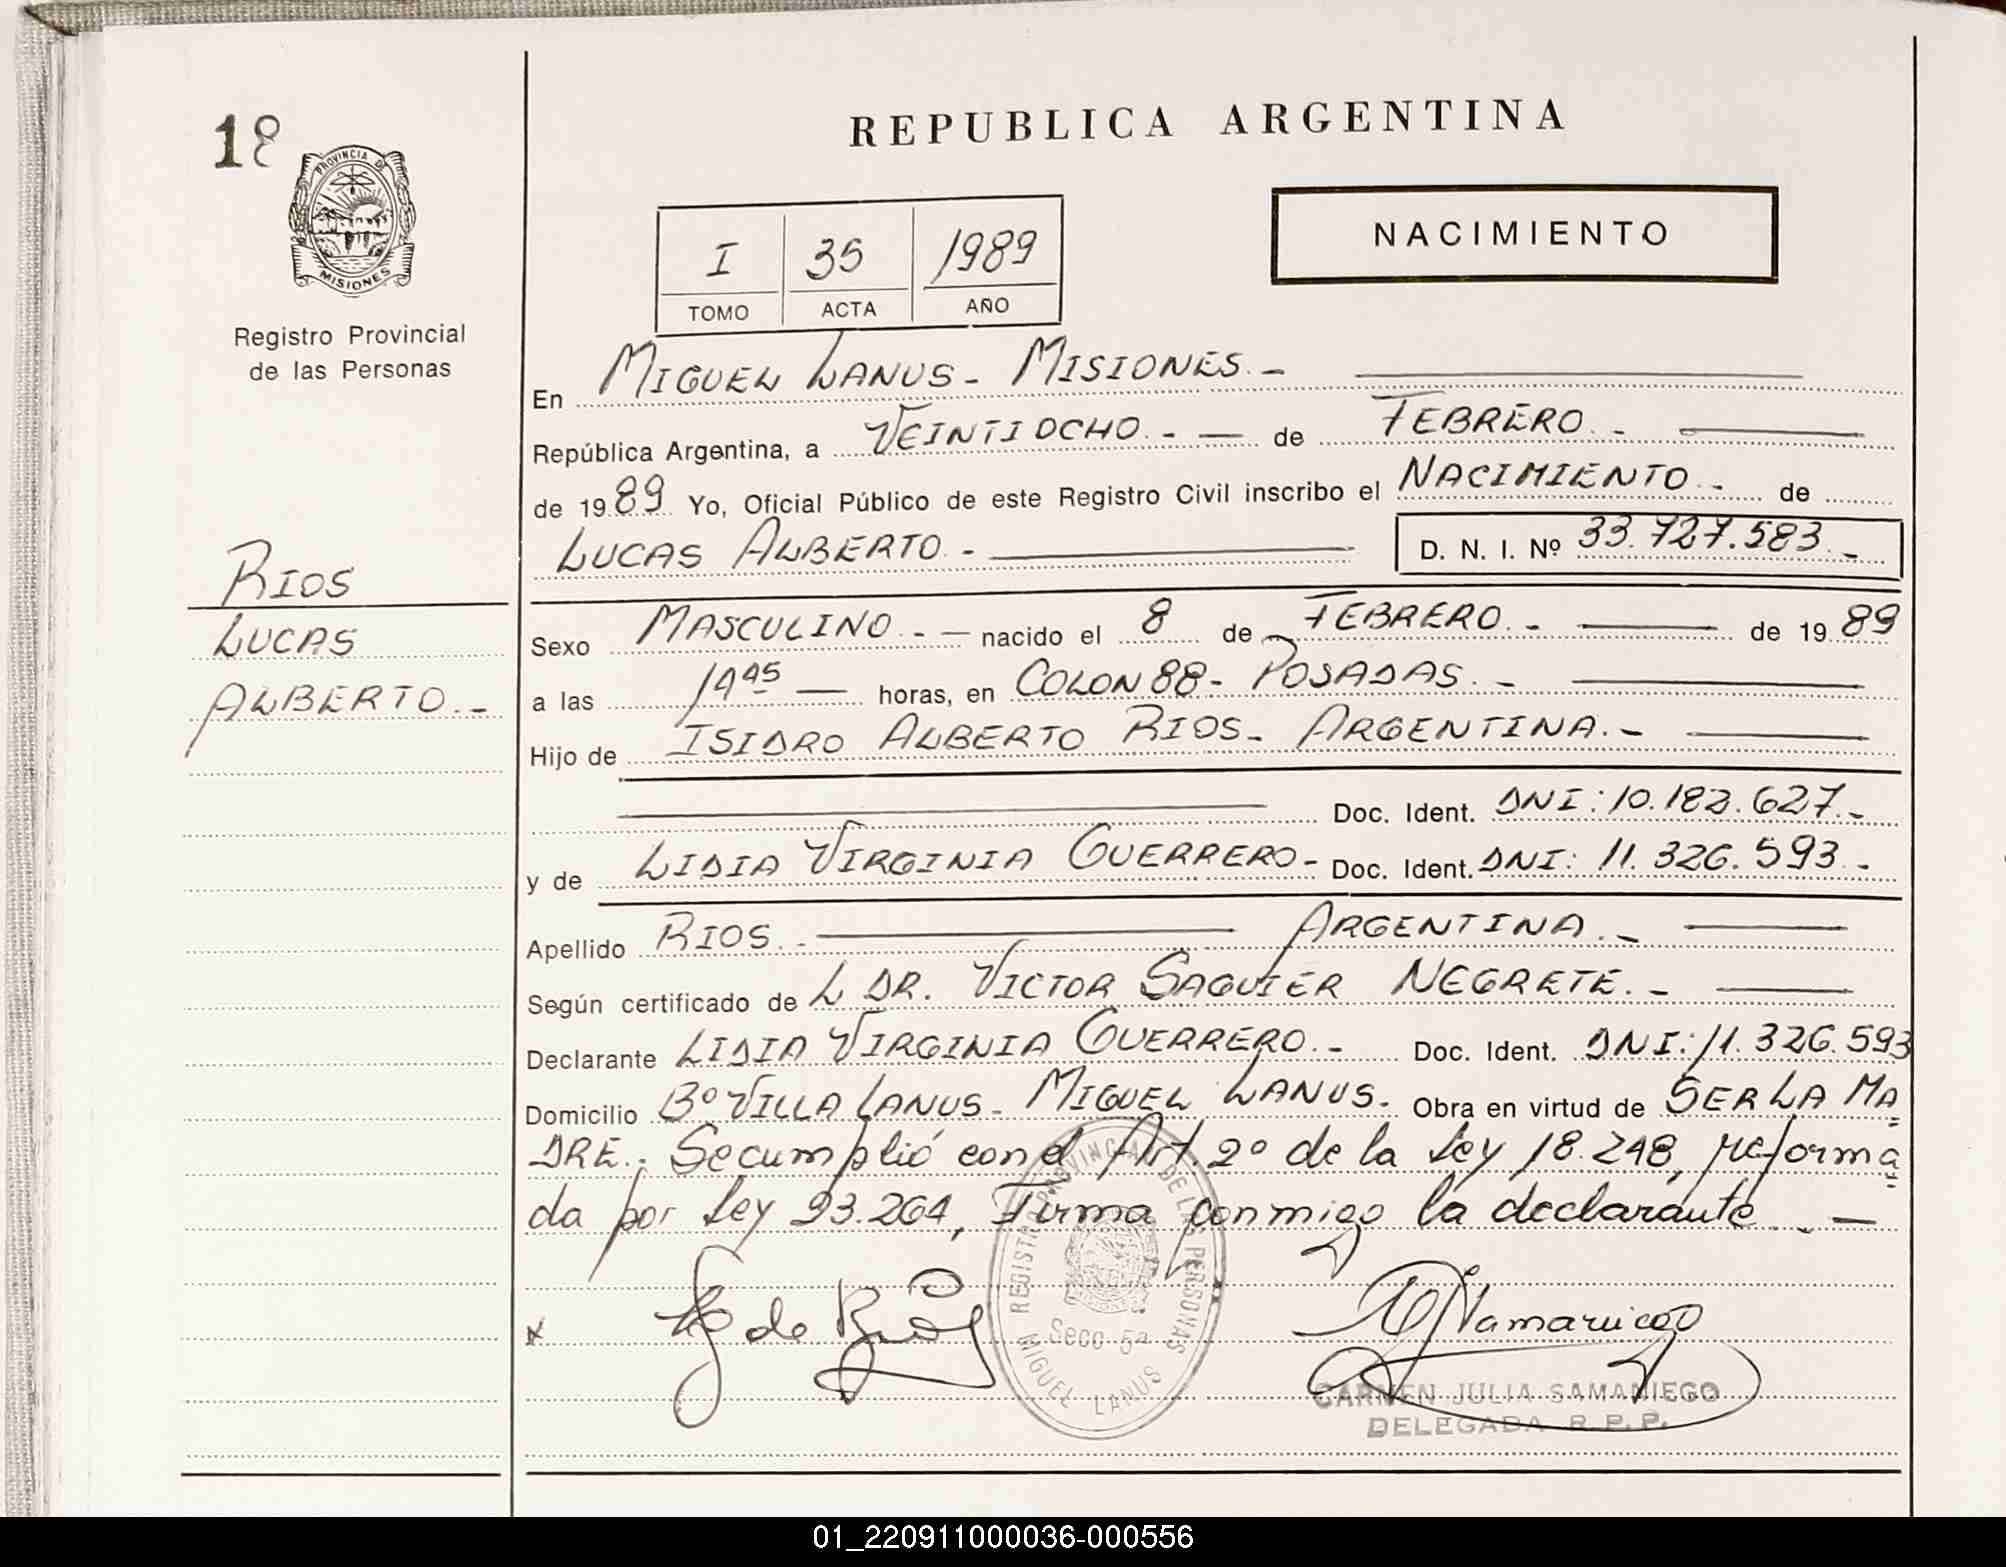 18
PROVINCIA DE
MISIONES
Registro Provincial
de las Personas
REPUBLICA ARGENTINA
NACIMIENTO
I 35 1989
TOMO ACTA AÑO
En MIGUEL LANUS - MISIONES.-
República Argentina, a VEINTIOCHO.- - de FEBRERO.-
de 1989 Yo, Oficial Público de este Registro Civil inscribo el NACIMIENTO.- de
LUCAS ALBERTO.- D. N. I. Nº 33.727.583.-
RIOS
LUCAS
ALBERTO.-
Sexo MASCULINO.- - nacido el 8 de FEBRERO.- de 1989
a las 19 45 horas, en COLON 88 - POSADAS.-
Hijo de ISIDRO ALBERTO RIOS - ARGENTINA.-
Doc. Ident. DNI: 10.182.627.-
y de LIDIA VIRGINIA GUERRERO - Doc. Ident. DNI: 11.326.593.-
Apellido RIOS.- ARGENTINA.-
Según certificado de L DR. VICTOR SAGUIER NEGRETE.-
Declarante LIDIA VIRGINIA GUERRERO.- Doc. Ident. DNI: 11.326.593
Domicilio Bº VILLA LANUS - MIGUEL LANUS. Obra en virtud de SER LA MA=
DRE.; Se cumplió con el Art. 2º de la Ley 18.248, reforma=
da por Ley 23.264, Firma conmigo la declarante.-
x de Rios
REGISTRO PROVINCIAL DE LAS PERSONAS
Secc 5a
MIGUEL LANUS
CARMEN JULIA SAMANIEGO
DELEGADA R. P. P.
01_220911000036-000556